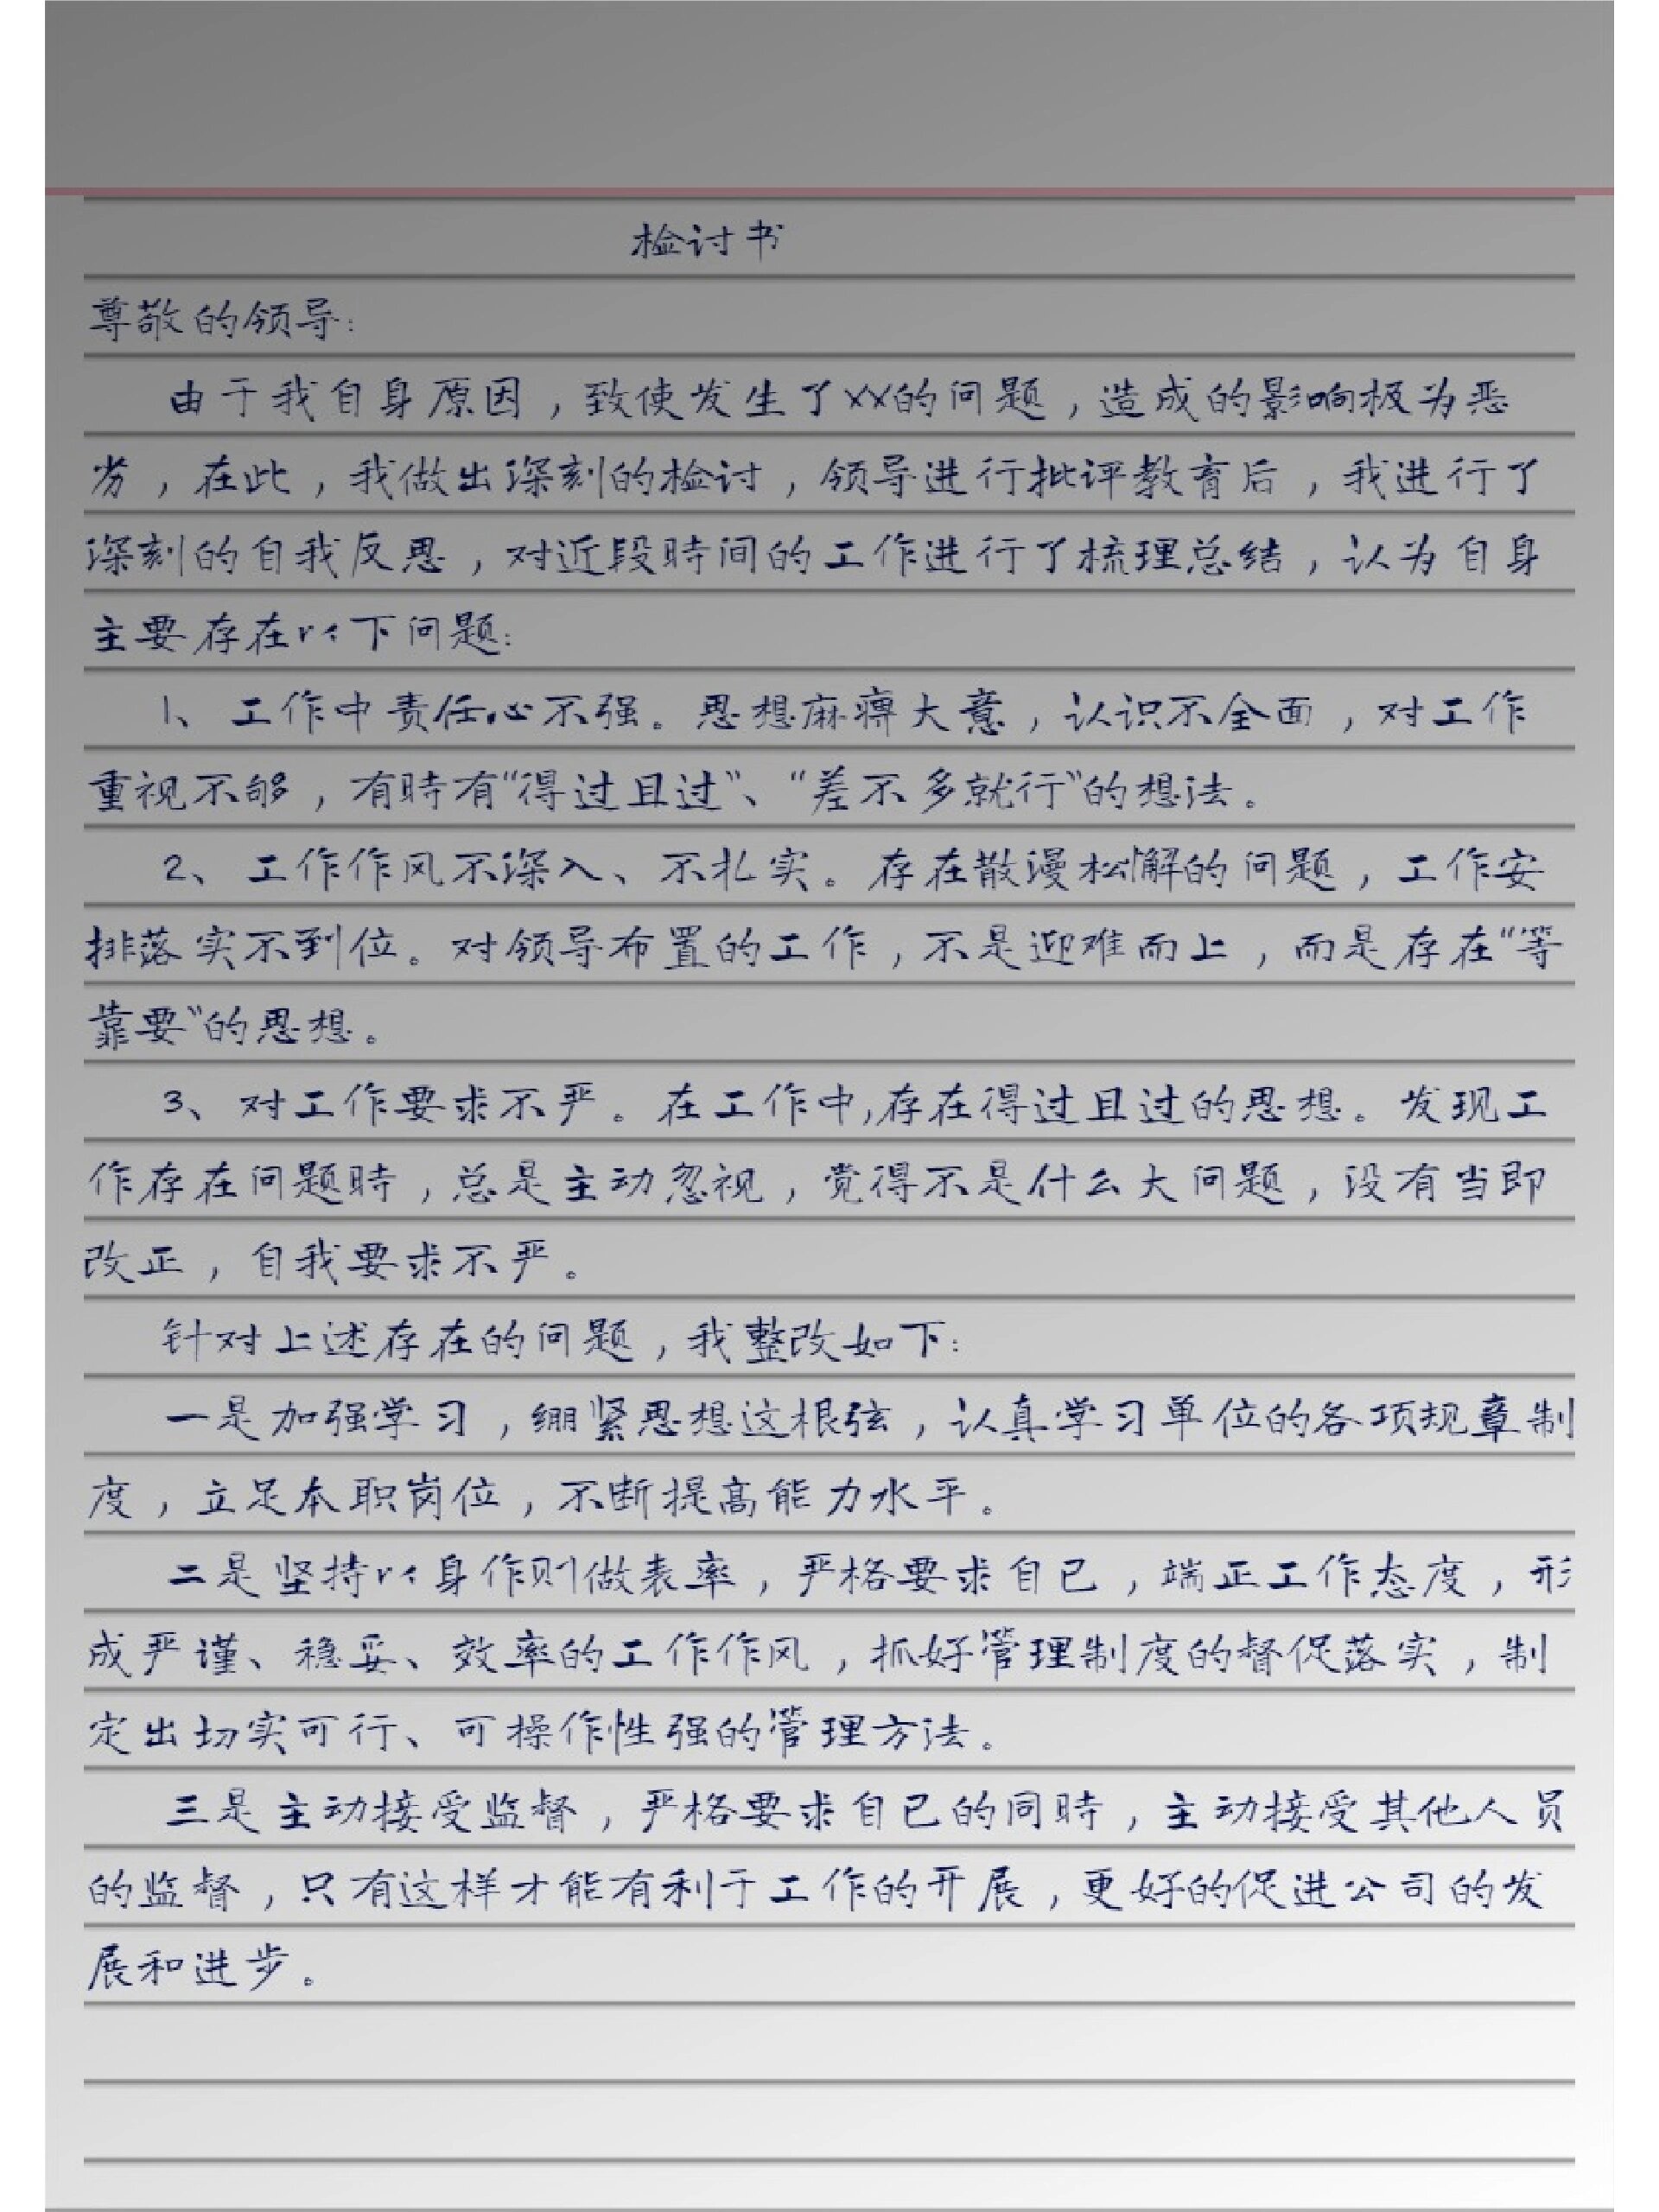 检讨书
尊敬的领导：
由于我自身原因，致使发生了xx的问题，造成的影响极为恶
劣，在此，我做出深刻的检讨，领导进行批评教育后，我进行了
深刻的自我反思，对近段時间的工作进行了梳理总结，认为自身
主要存在以下问题：
1、工作中责任心不强。思想麻痹大意，认识不全面，对工作
重视不够，有時有“得过且过”、“差不多就行”的想法。
2、工作作风不深入、不扎实。存在散漫松懈的问题，工作安
排落实不到位。对领导布置的工作，不是迎难而上，而是存在“等
靠要”的思想。
3、对工作要求不严。在工作中,存在得过且过的思想。发现工
作存在问题時，总是主动忽视，觉得不是什么大问题，没有当即
改正，自我要求不严。
针对上述存在的问题，我整改如下：
一是加强学习，绷紧思想这根弦，认真学习单位的各项规章制
度，立足本职岗位，不断提高能力水平。
二是坚持以身作则做表率，严格要求自己，端正工作态度，形
成严谨、稳妥、效率的工作作风，抓好管理制度的督促落实，制
定出切实可行、可操作性强的管理方法。
三是主动接受监督，严格要求自己的同時，主动接受其他人员
的监督，只有这样才能有利于工作的开展，更好的促进公司的发
展和进步。